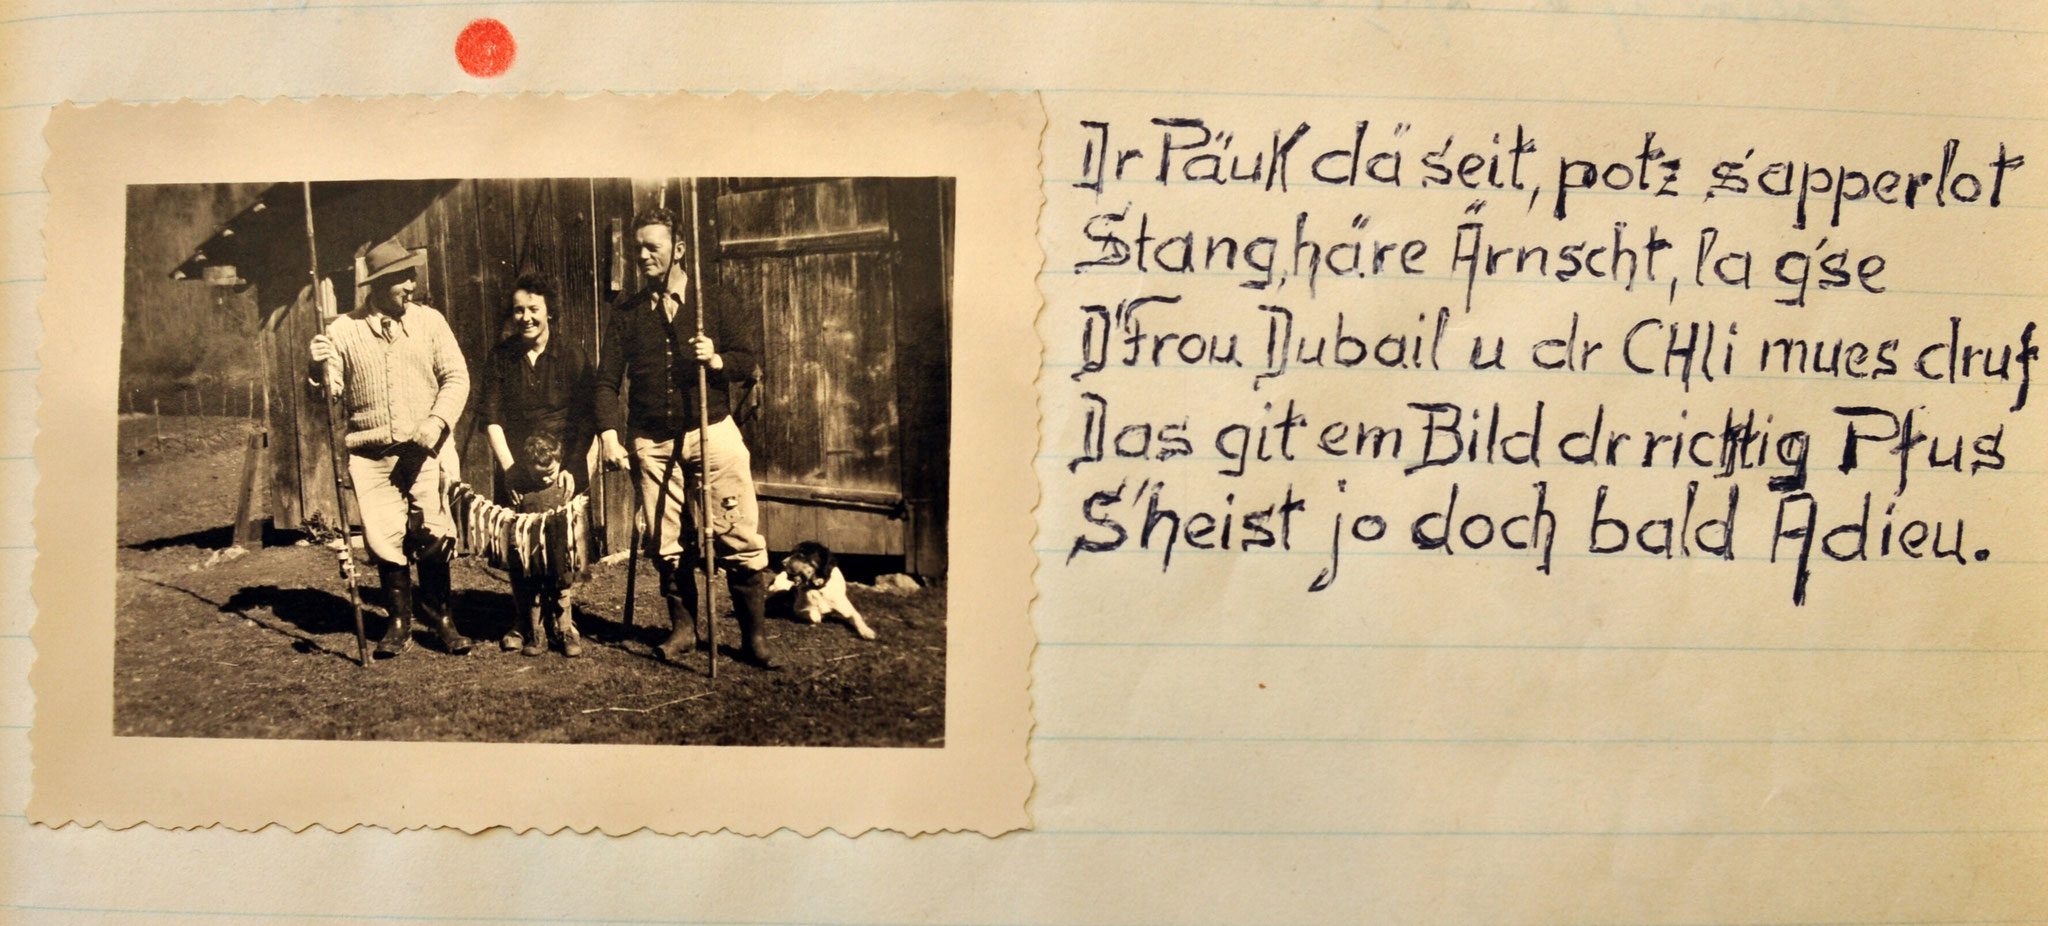 Dr Päuk dä seit, potz sapperlot
Stang, häre Ärnscht, la g'se
D'Frou Dubail u dr CHli mues druf
Das git em Bild dr richtig Pfus
S'heist jo doch bald Adieu.